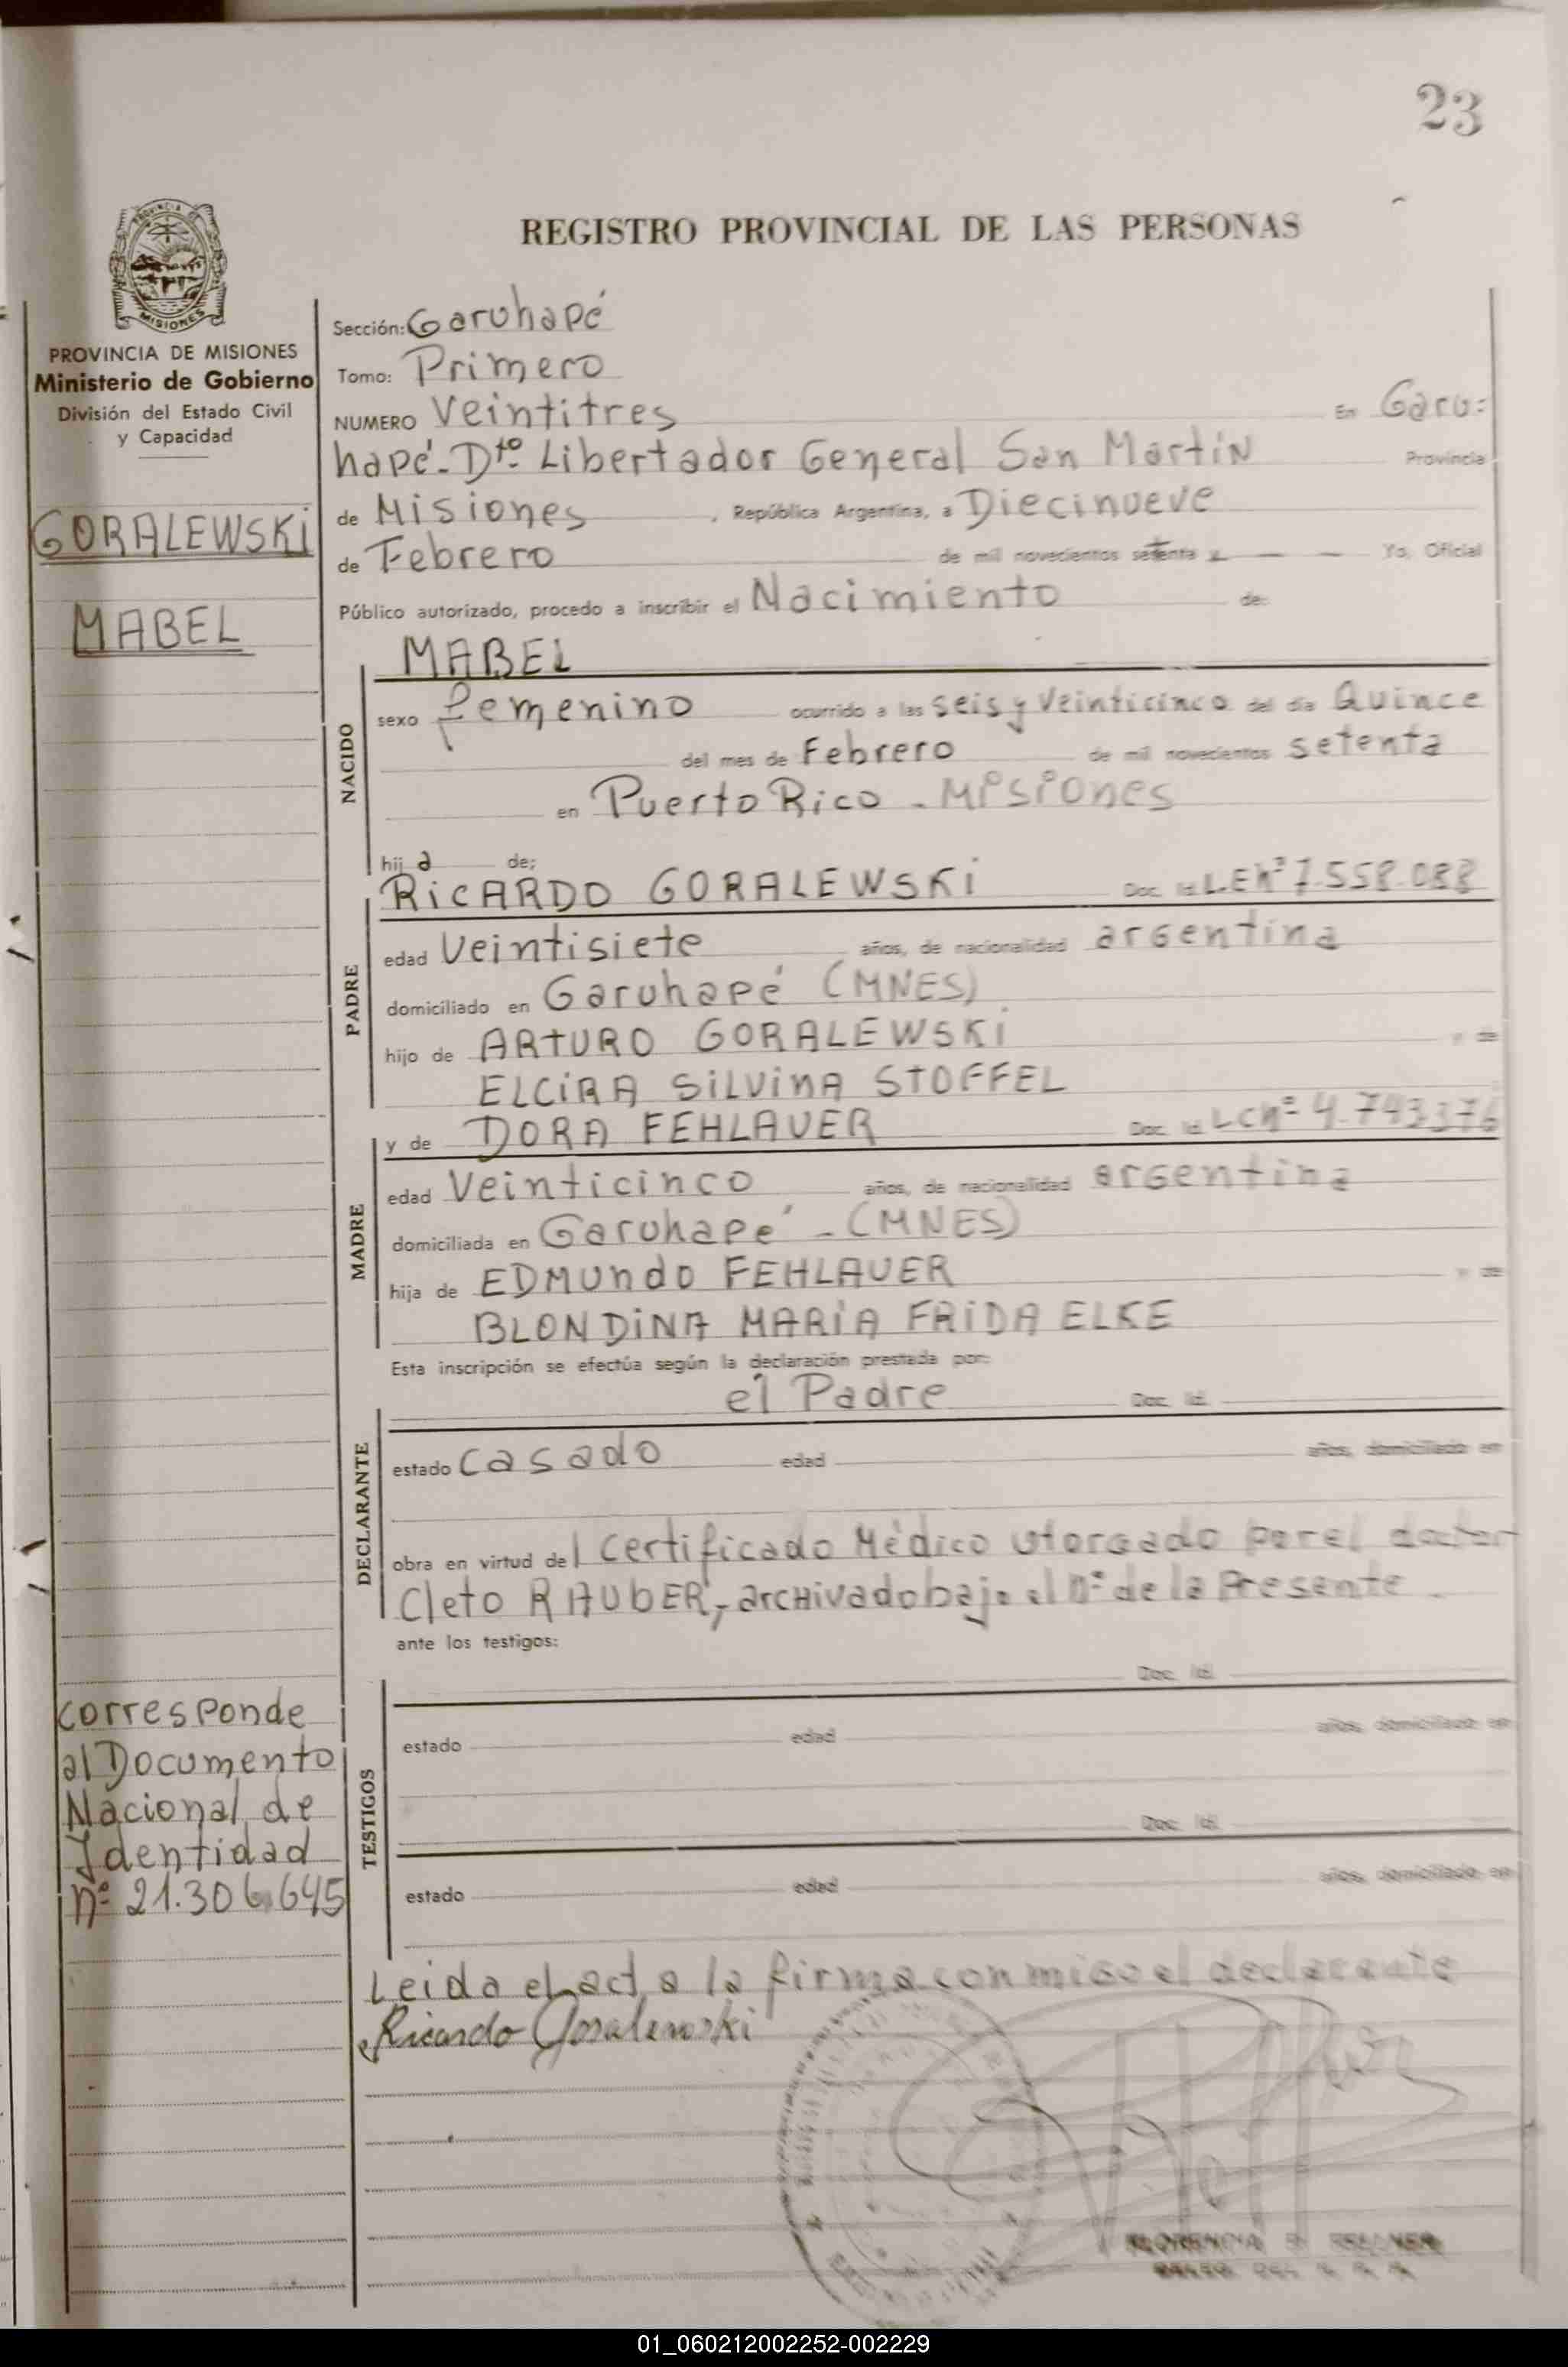 23
PROVINCIA DE
MISIONES
REGISTRO PROVINCIAL DE LAS PERSONAS
PROVINCIA DE MISIONES
Ministerio de Gobierno
División del Estado Civil
y Capacidad
GORALEWSKI
MABEL
Sección: Garuhapé
Tomo: Primero
NUMERO Veintitres En Garu=
hapé-Dto. Libertador General San Martín Provincia
de Misiones, República Argentina, a Diecinueve
de Febrero de mil novecientos setenta y — — — Yo, Oficial
Público autorizado, procedo a inscribir el Nacimiento de:
NACIDO
MABEL
sexo femenino ocurrido a las seis y Veinticinco del día Quince
del mes de Febrero de mil novecientos setenta
en Puerto Rico - Misiones
hija de:
PADRE
RICARDO GORALEWSKI Doc. Id. LE nº 7.558.088
edad Veintisiete años, de nacionalidad argentina
domiciliado en Garuhapé (MNES)
hijo de ARTURO GORALEWSKI y de
ELCIRA SILVINA STOFFEL
MADRE
y de DORA FEHLAUER Doc. Id. LC nº 4.743.376
edad Veinticinco años, de nacionalidad argentina
domiciliada en Garuhapé - (MNES)
hija de EDMUNDO FEHLAUER y de
BLONDINA MARÍA FRIDA ELKE
Esta inscripción se efectúa según la declaración prestada por:
DECLARANTE
el Padre Doc. Id.
estado casado edad años, domiciliado en
obra en virtud del Certificado Médico otorgado por el doctor
Cleto RAUBER, archivado bajo el nº de la Presente.
ante los testigos:
TESTIGOS
Doc. Id.
estado edad años, domiciliado en
Doc. Id.
estado edad años, domiciliado en
corresponde
al Documento
Nacional de
Identidad
nº 21.306.645
Leida el acta la firma conmigo el declarante
Ricardo Goralewski
01_060212002252-002229